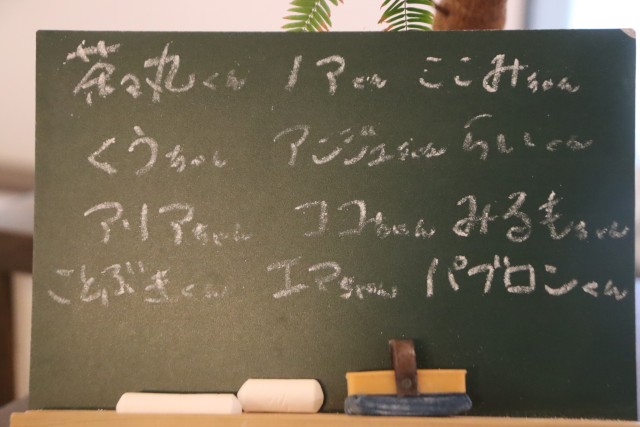 茶々丸くん ノアくん ここみちゃん
くうちゃん アンジュちゃん らいくん
アリアちゃん ココちゃん みるもちゃん
ことぶきくん エマちゃん パブロンくん